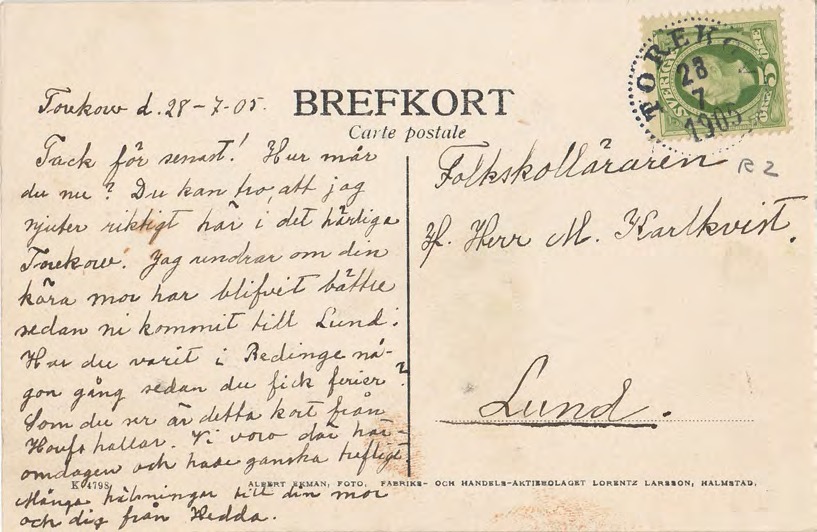 Torekow d. 28-7-05.
BREFKORT
Carte postale
Tack för senast! Hur mår
du nu? Du kan tro, att jag
njuter riktigt här i det härliga
Torekow. Jag undrar om din
kära mor har blifvit bättre
sedan ni kommit till Lund.
Har du varit i Redinge nå-
gon gång sedan du fick ferier?
Som du ser är detta kort från
Hofs hallar. Vi voro där här-
omdagen och hade ganska trefligt
Många hälsningar till din mor
och dig från Hedda.
TOREKO
28
7
1905
SVERIGE
5
R 2
Folkskolläraren
H. Herr M. Karlkvist.
Lund.
K 4798
ALBERT EKMAN, FOTO. FABRIKS- OCH HANDELS-AKTIEBOLAGET LORENTZ LARSSON, HALMSTAD.